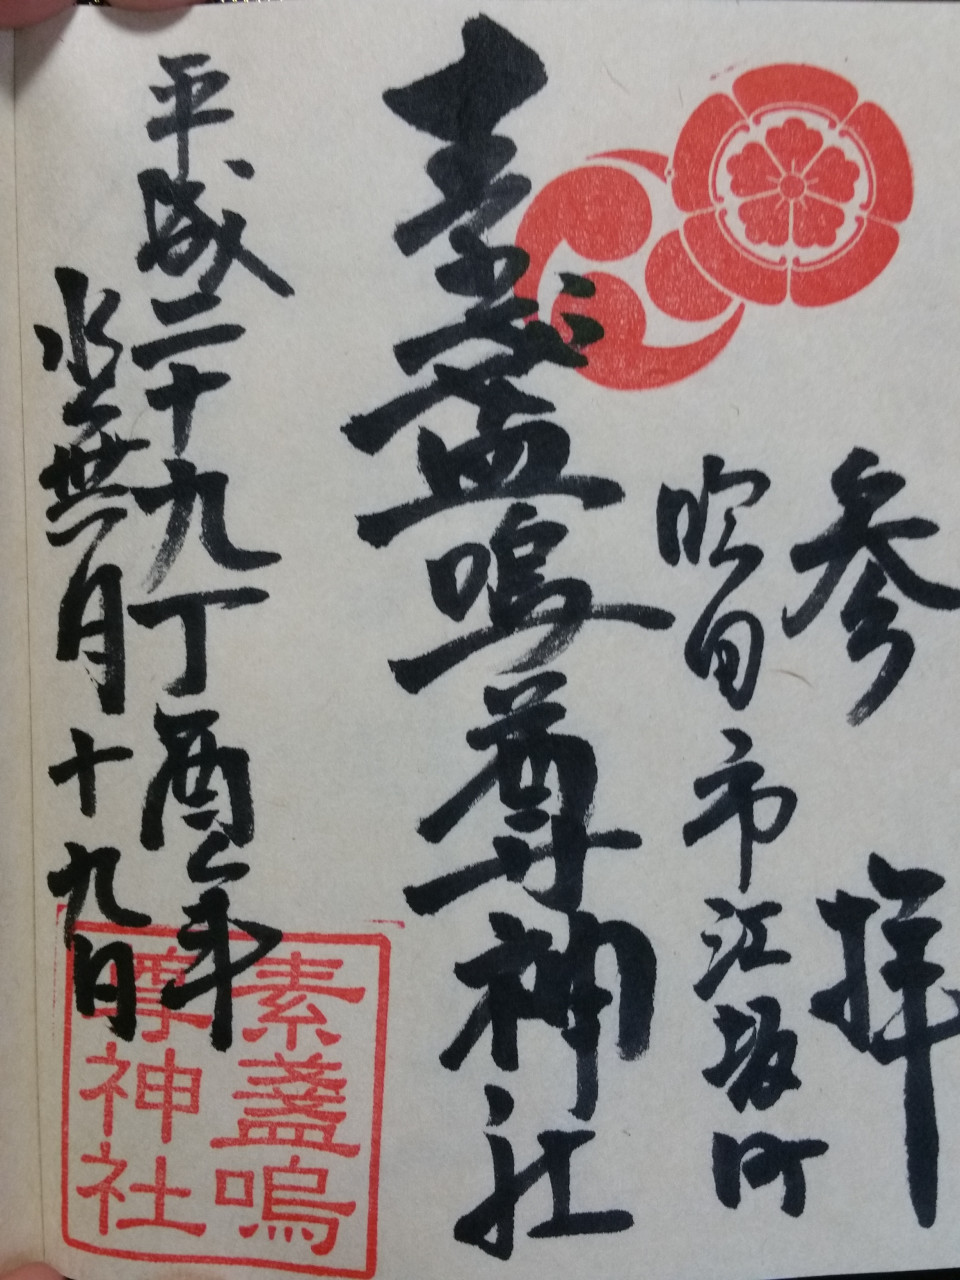 参拝
吹田市江坂町
素盞嗚尊神社
平成二十九丁酉年
水無月十九日
素盞嗚
尊神社